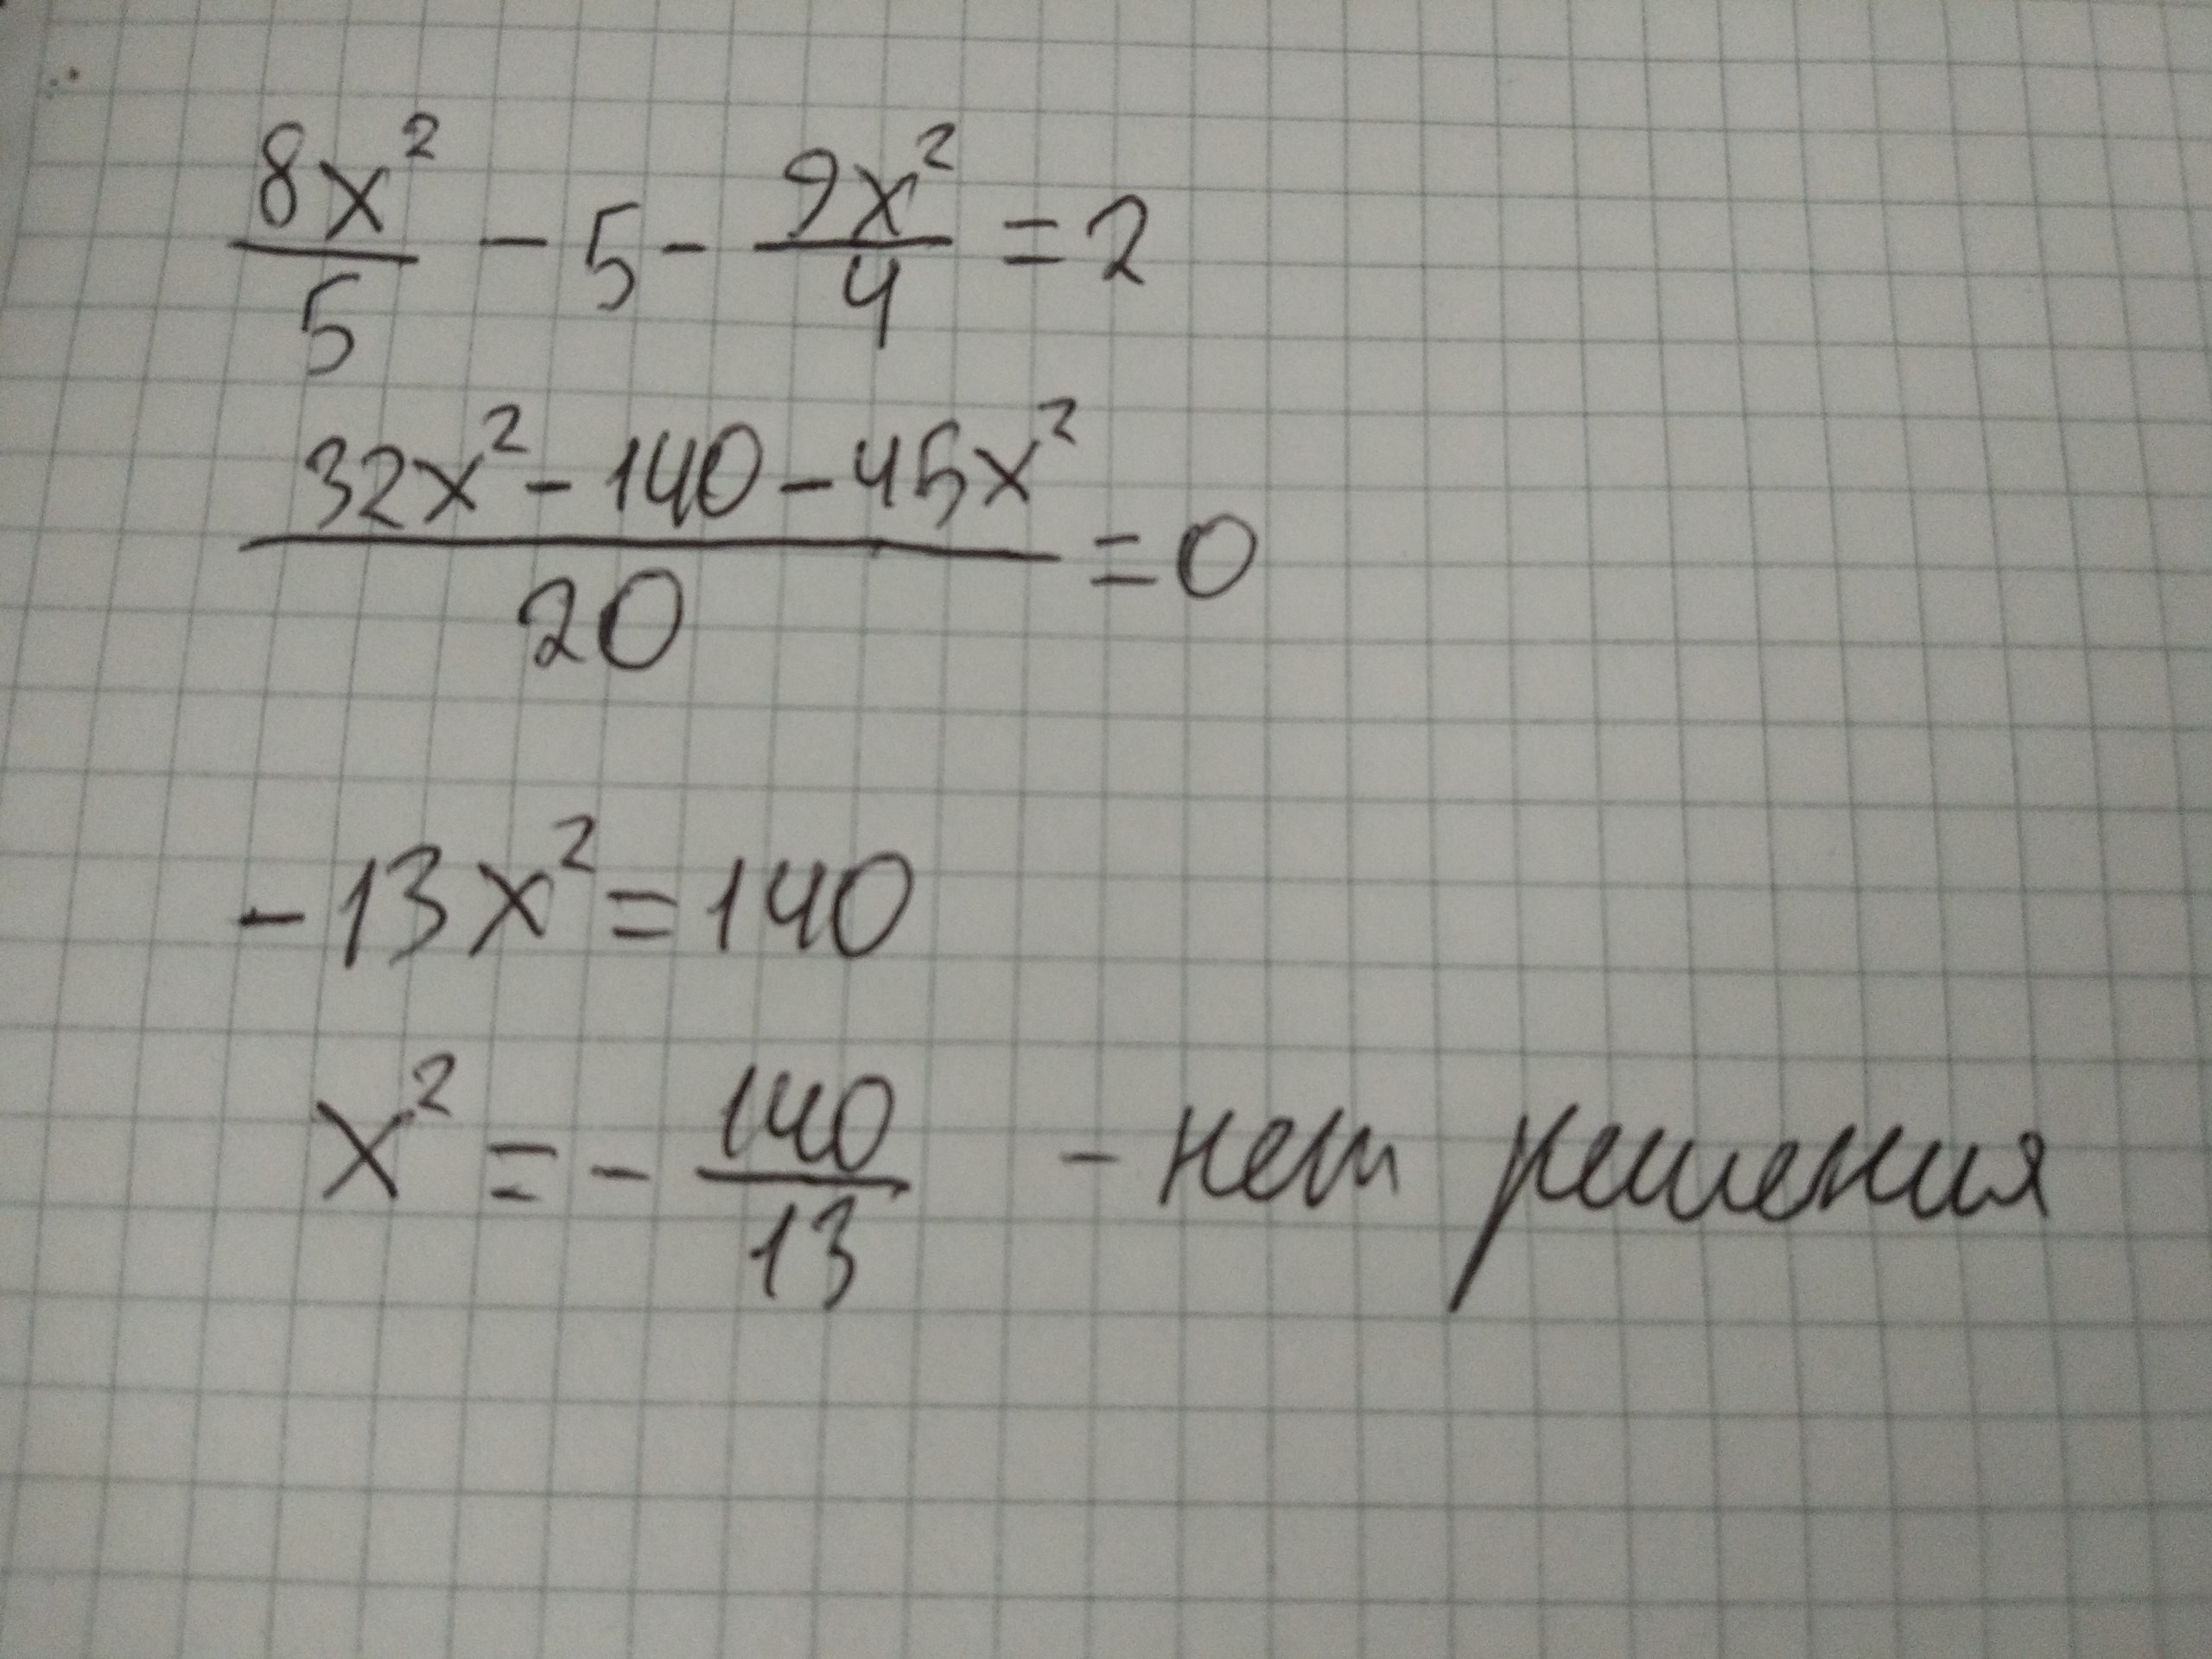 8x²/5 - 5 - 9x²/4 = 2
(32x² - 140 - 45x²)/20 = 0
-13x² = 140
x² = - 140/13 - нет решения